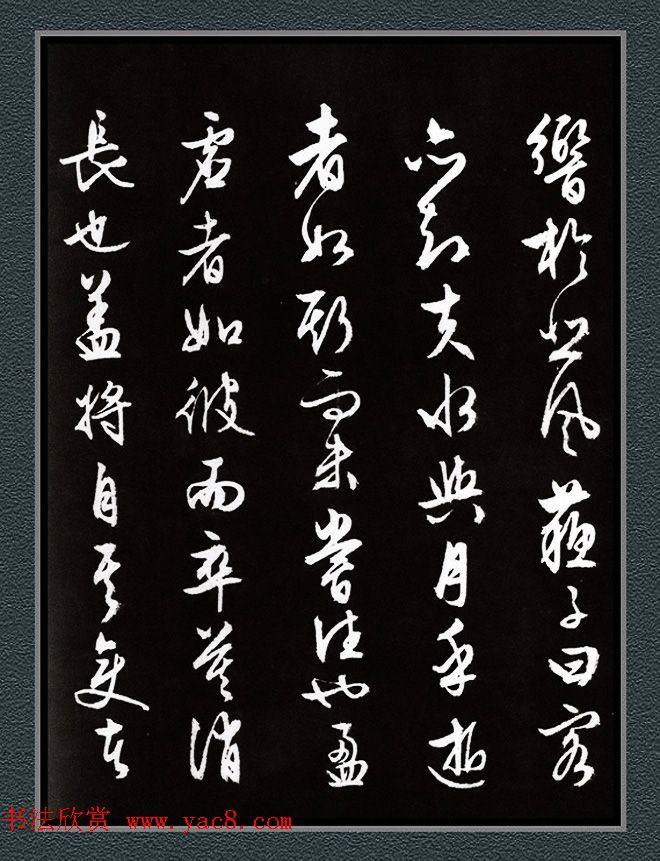 響於悲風蘇子曰客
亦知夫水與月乎逝
者如斯而未嘗往也盈
虛者如彼而卒莫消
長也盖將自其變者
书法欣赏 www.yac8.com